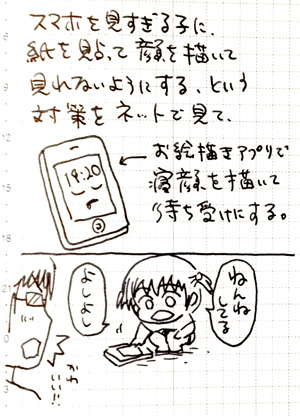 スマホを見すぎる子に、
紙を貼って顔を描いて
見れないようにする、という
対策をネットで見て、
お絵描きアプリで
寝顔を描いて
待ち受けにする。
19:20
ねんね
してる
よしよし
かわ
いい!!